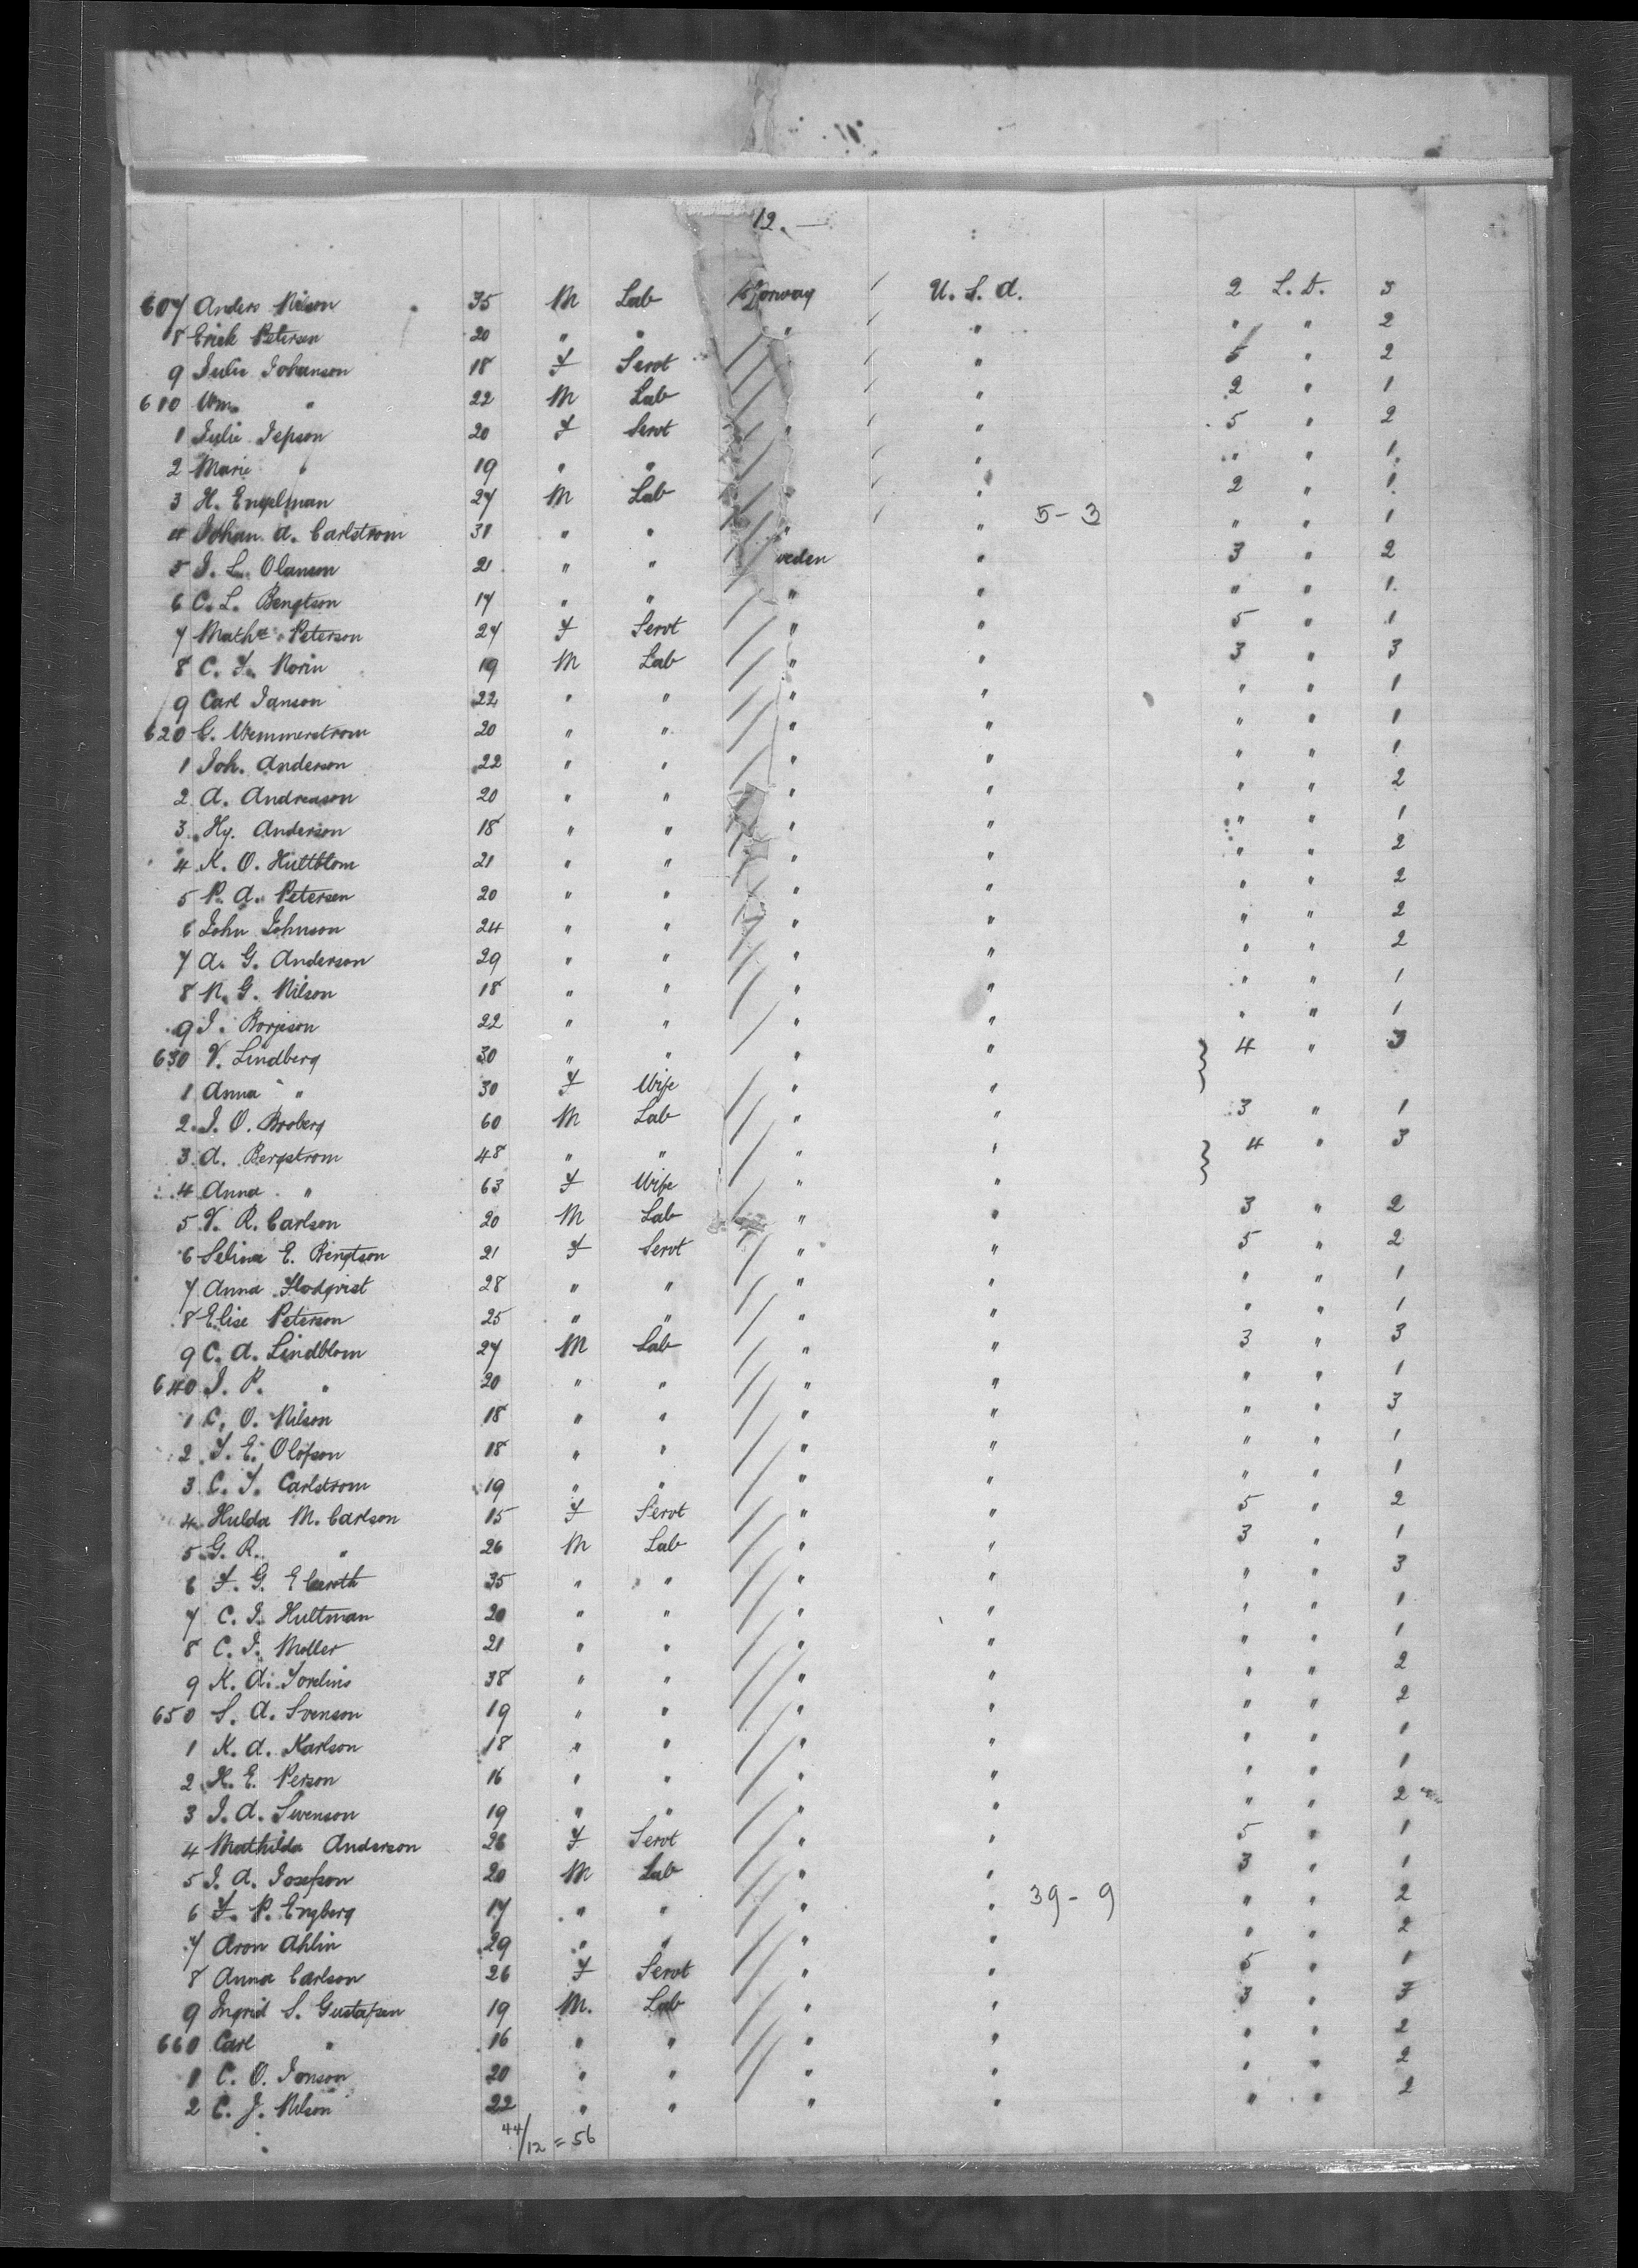 12.
607 Anders Nilson 35 M Lab Norway U. S. A. 2 L. D. 3
8 Erick Petersen 20 " " " " " " 2
9 Julie Johanson 18 F Servt " 5 " 2
610 Wm. " 22 M Lab " 2 " 1
1 Julie Jepson 20 F Servt " " 5 " 2
2 Marie " 19 " " " " " 1.
3 H. Engelman 27 M Lab " 2 " 1.
4 Johan A. Carlstrom 31 " " " " 5-3 " " 1
5 J. L. Olanson 21 " " weden " 3 " 2
6 C. L. Bengtson 17 " " " " " " 1.
7 Matha Peterson 27 F Servt " " 5 " 1
8 C. F. Norin 19 M Lab " " 3 " 3
9 Carl Janson 22 " " " " " " 1
620 G. Wemmerstrom 20 " " " " " " 1
1 Joh. Anderson 22 " " " " " " 1
2 A. Andreason 20 " " " " " " 2
3 Hy. Anderson 18 " " " " " " 1
4 K. O. Huttblom 21 " " " " " " 2
5 P. A. Petersen 20 " " " " " " 2
6 John Johnson 24 " " " " " " 2
7 A. G. Anderson 29 " " " " " " 2
8 N. G. Nilson 18 " " " " " " 1
9 J. Borjeson 22 " " " " " " 1
630 V. Lindberg 30 " " " " } 4 " 3
1 Anna " 30 F Wife " "
2 J. O. Broberg 60 M Lab " " 3 " 1
3 A. Bergstrom 48 " " " " } 4 " 3
4 Anna " 63 F Wife " "
5 V. R. Carlson 20 M Lab " " 3 " 2
6 Selina E. Bengtson 21 F Servt " " 5 " 2
7 Anna Flodqvist 28 " " " " " " 1
8 Elise Peterson 25 " " " " " " 1
9 C. A. Lindblom 27 M Lab " " 3 " 3
640 J. P. " 20 " " " " " " 1
1 C. O. Nilson 18 " " " " " " 3
2 J. E. Olofson 18 " " " " " " 1
3 C. F. Carlstrom 19 " " " " " " 1
4 Hulda M. Carlson 15 F Servt " " 5 " 2
5 G. R. " 26 M Lab " " 3 " 1
6 F. G. 35 " " " " " " 3
7 C. J. Hultman 20 " " " " " " 1
8 C. J. Moller 21 " " " " " " 1
9 K. A. 38 " " " " " " 2
650 S. A. Svenson 19 " " " " " " 2
1 K. A. Karlson 18 " " " " " " 1
2 H. E. Person 16 " " " " " " 1
3 J. A. Swenson 19 " " " " " " 2
4 Mathilda Anderson 26 F Servt " " 5 " 1
5 J. A. Josefson 20 M Lab " " 3 " 1
6 F. P. Engberg 17 " " " " 39-9 " " 2
7 Aron Ahlin 29 " " " " " " 2
8 Anna Carlson 26 F Servt " " 5 " 1
9 Ingrid S. Gustafsen 19 M. Lab " " 3 " 3
660 Carl " 16 " " " " " " 2
1 C. O. Jonson 20 " " " " " " 2
2 C. J. Nilson 22 " " " " " " 2
44/12 = 56